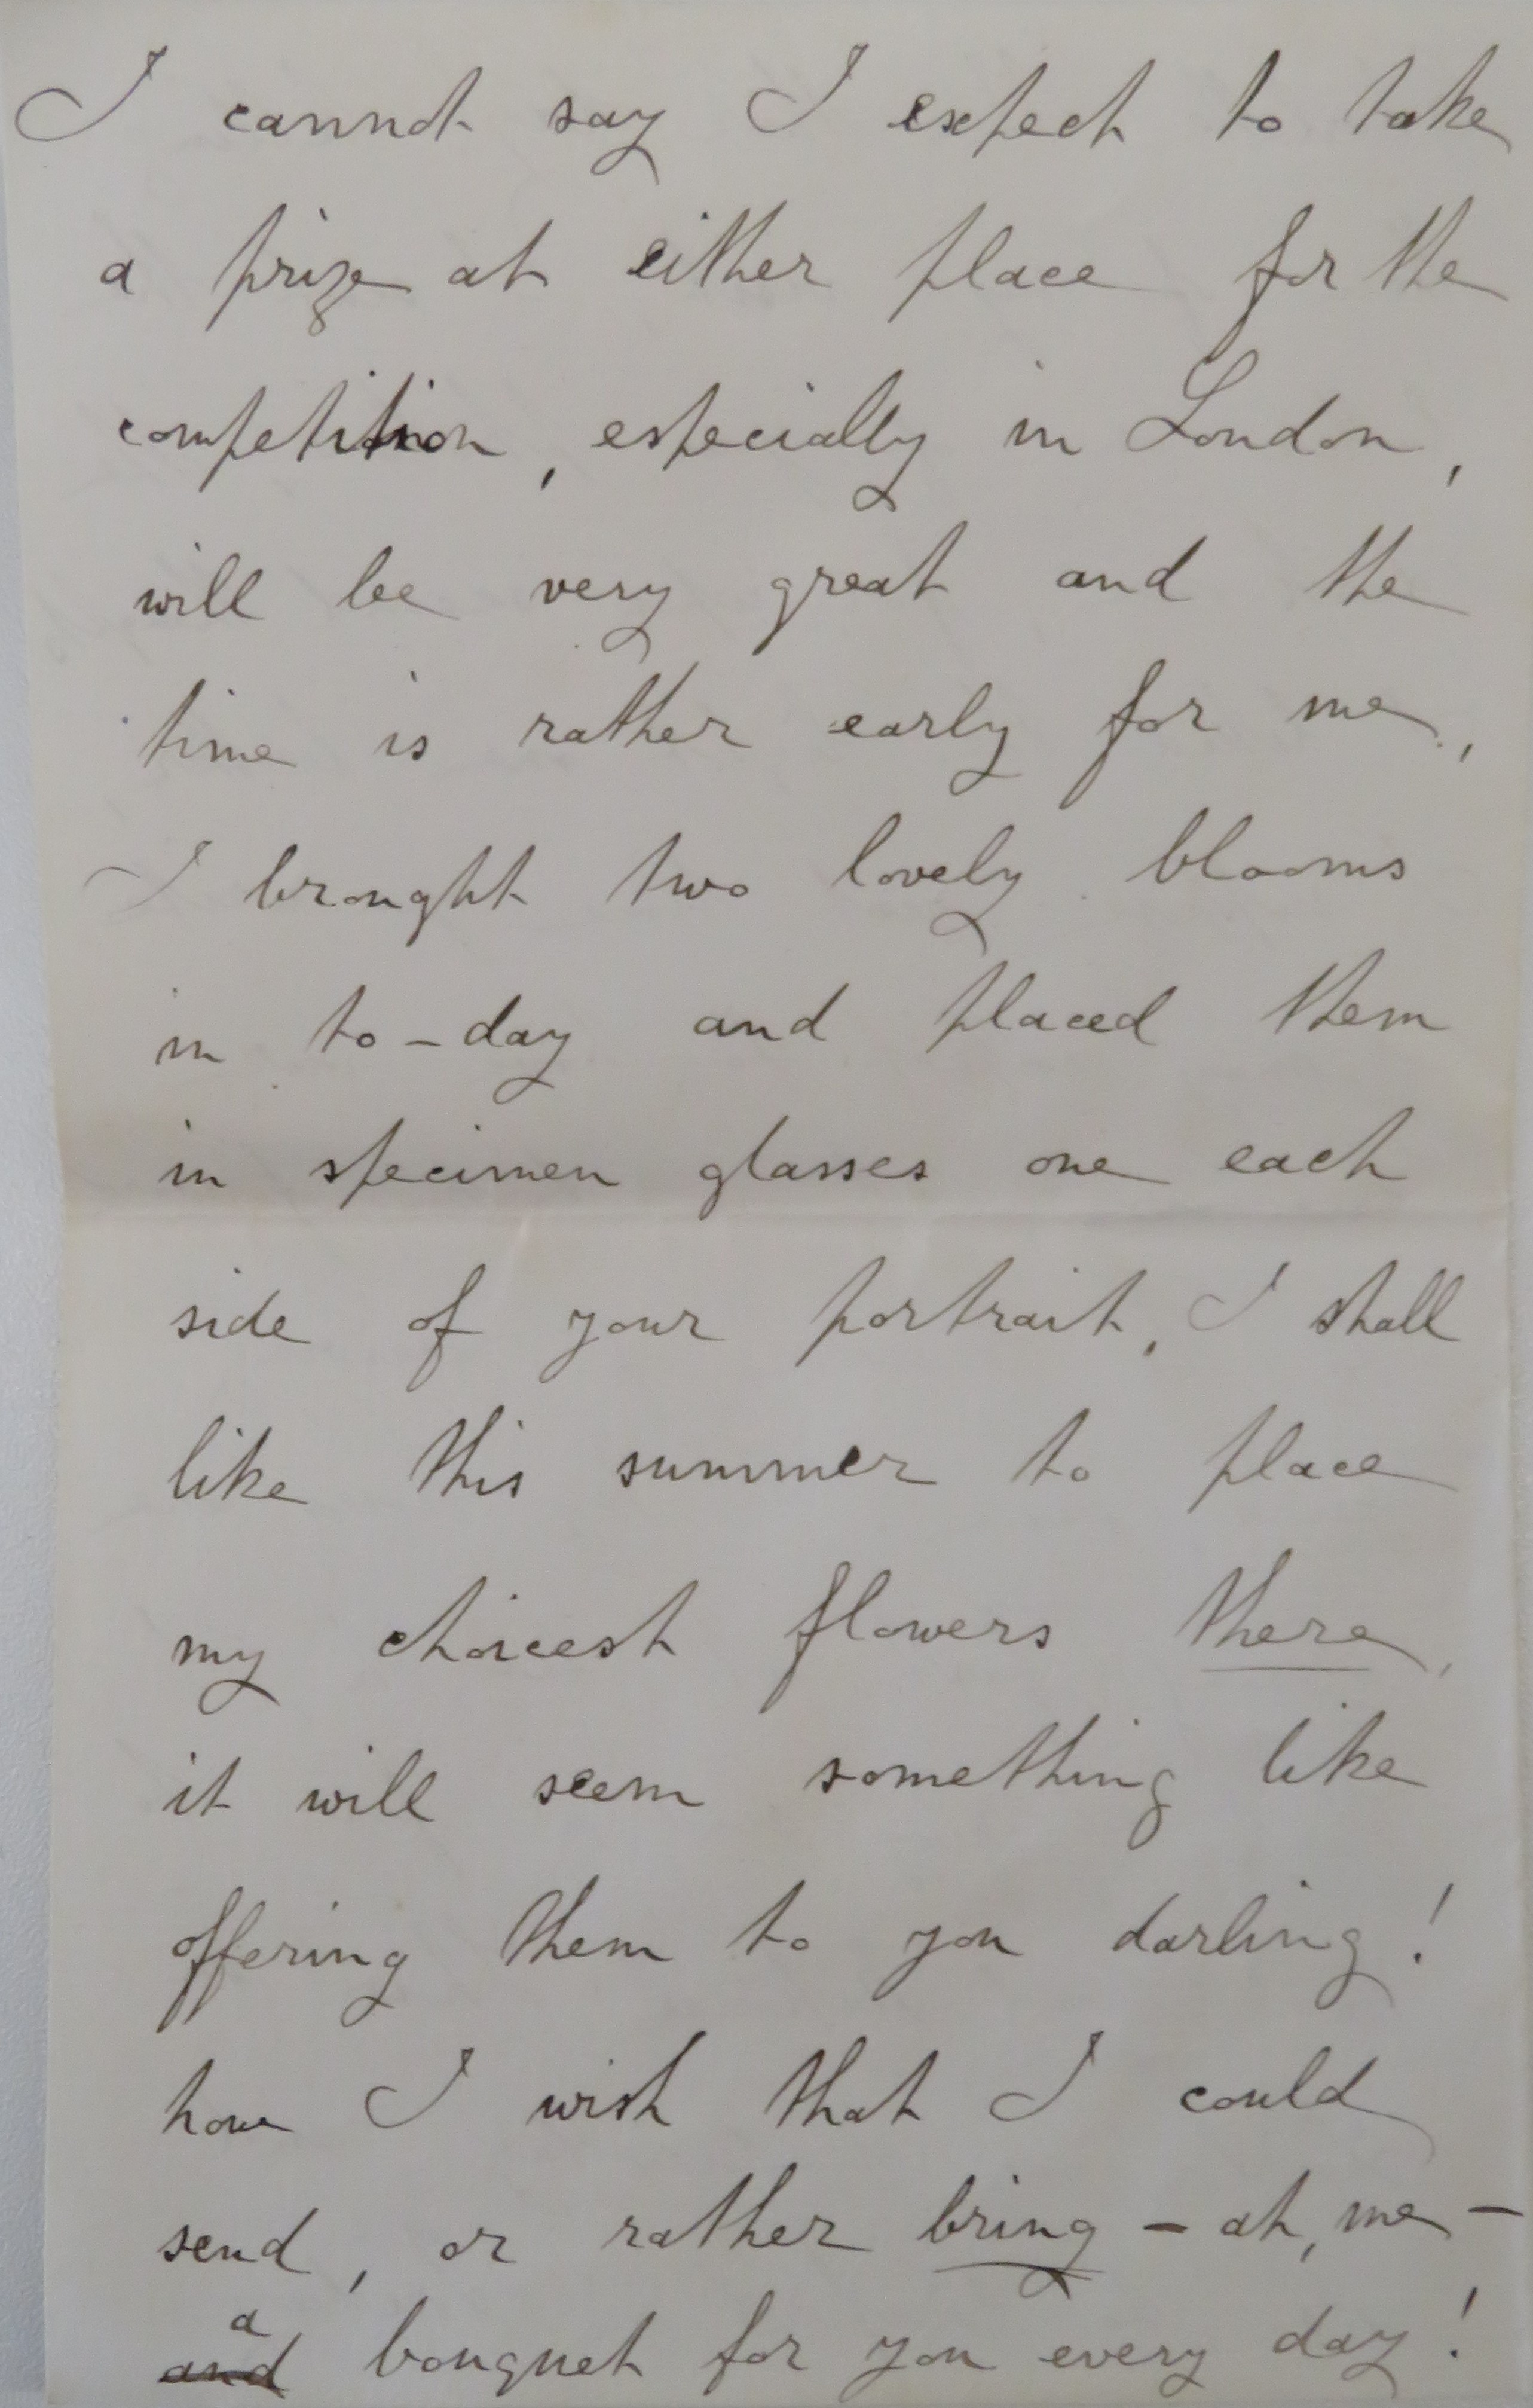 I cannot say I expect to take
a prize at either place for the
competition, especially in London,
will be very great and the
time is rather early for me,
I brought two lovely blooms
in to-day and placed them
in specimen glasses one each
side of your portrait, I shall
like this summer to place
my choicest flowers there,
it will seem something like
offering them to you darling!
how I wish that I could
send, or rather bring - ah, me -
a
and bouquet for you every day!